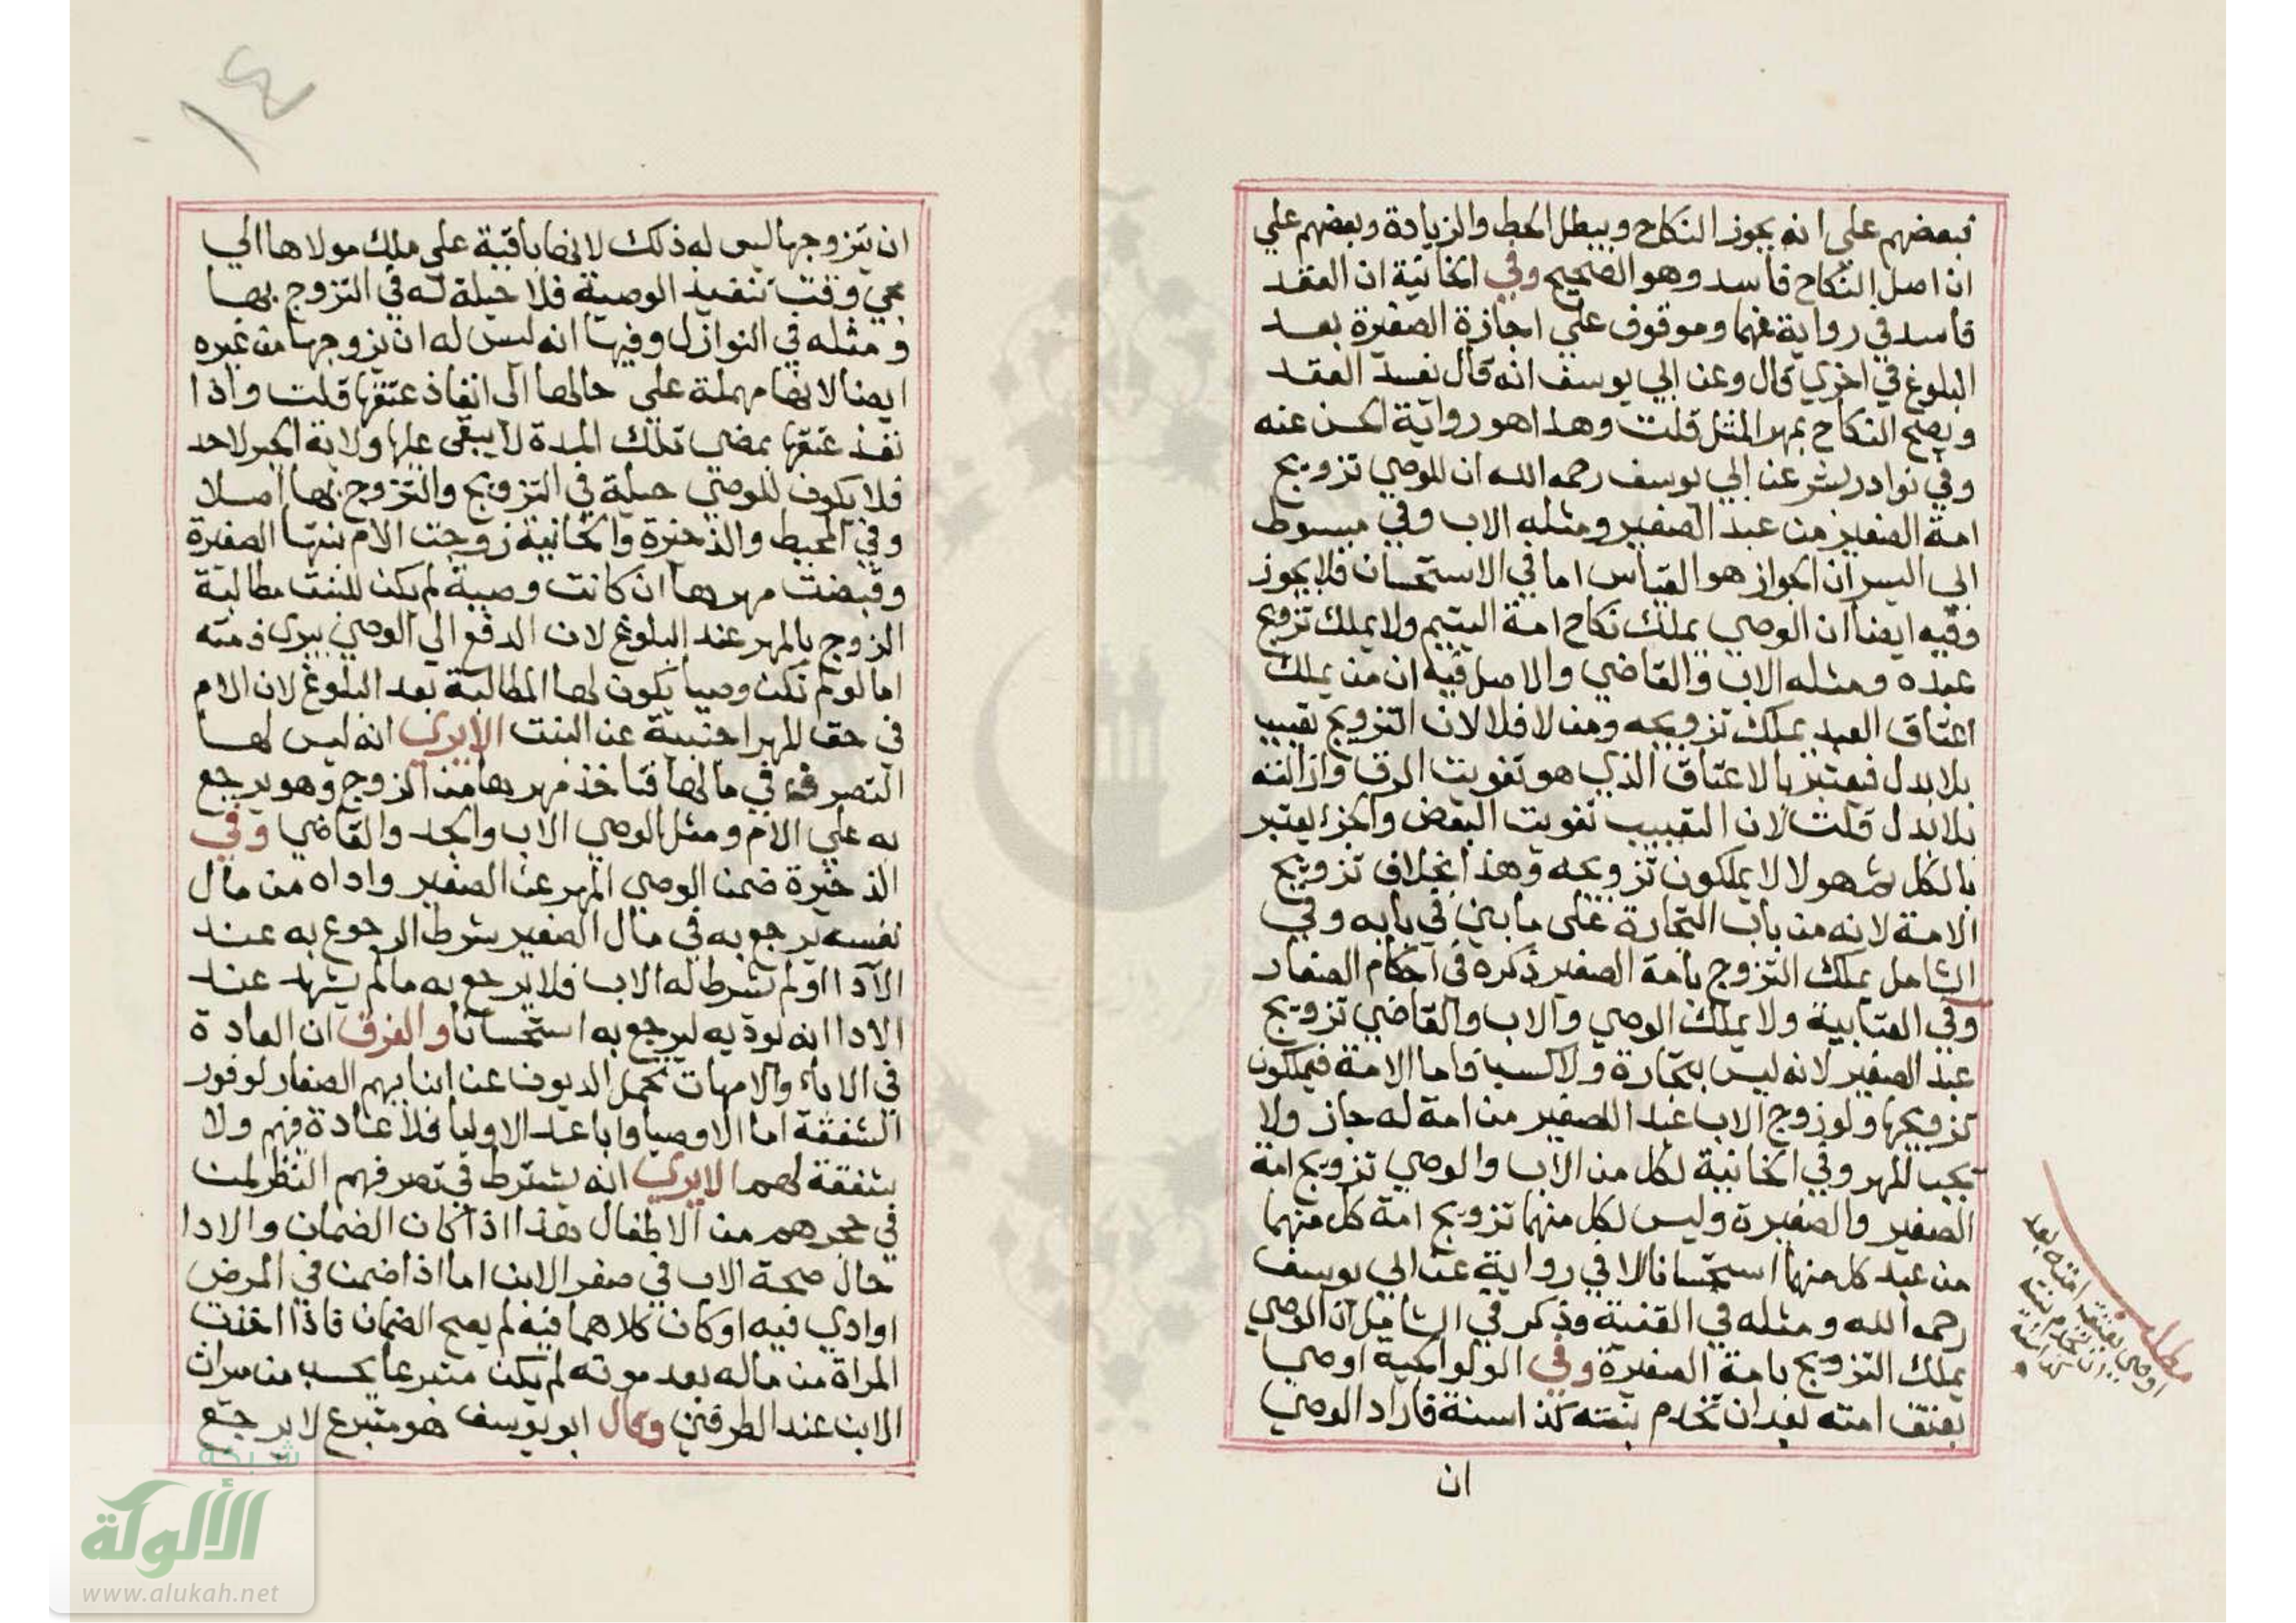 فبعضهم علي انه يجوز النكاح ويبطل الحط والزيادة وبعضهم علي
ان اصل النكاح فاسد وهو الصحيح وفي الخانية ان العقد
فاسد في رواية عنهما وموقوف علي اجازة الصغيرة بعد
البلوغ في اخري قال وعن ابي يوسف انه قال يفسد العقد
ويصح النكاح بمهر المثل قلت وهذا هو رواية الحسن عنه
وفي نوادر بشر عن ابي يوسف رحمه الله ان للوصي تزويج
امة الصغير من عبد الصغير ومثله الاب وفي مبسوط
ابي اليسر ان الجواز هو القياس اما في الاستحسان فلا يجوز
وفيه ايضا ان الوصي يملك نكاح امة اليتيم ولا يملك تزويج
عبده ومثله الاب والقاضي والاصل فيه ان من يملك
اعتاق العبد يملك تزويجه ومن لا فلا لان التزويج تعييب
بلا بدل فيعتبر بالاعتاق الذي هو تفويت الرق وازالته
بلا بدل قلت لان التعييب تفويت البعض والجزء يعتبر
بالكل ثم هولا لا يملكون تزويجه وهذا بخلاف تزويج
الامة لانه من باب التجارة علي ما بين في بابه وفي
الشامل يملك التزوج بامة الصغير ذكره في احكام الصغار
وفي العتابية ولا يملك الوصي والاب والقاضي تزويج
عبد الصغير لانه ليس بتجارة ولا كسب فاما الامة فيملكون
تزويجها ولو زوج الاب عبد الصغير من امة له جاز ولا
يجب المهر وفي الخانية لكل من الاب والوصي تزويج امة
الصغير والصغيرة وليس لكل منهما تزويج امة كل منهما
من عبد كل منهما استحسانا الا في رواية عن ابي يوسف
رحمه الله ومثله في القنية وذكر في الشامل ان الوصي
يملك التزويج بامة الصغيرة وفي الولوالجية اوصي
بعتق امته بعد ان تخدم بنته كذا سنة فاراد الوصي
ان
مطلب
اوصي بعتق امته بعد
ان تخدم بنته
كذا سنة
١٤
ان يتزوجها ليس له ذلك لانها باقية علي ملك مولاها الي
مجي وقت تنفيذ الوصية فلا حيلة له في التزوج بها
ومثله في النوازل وفيها انه ليس له ان يزوجها من غيره
ايضا لانها مهملة علي حالها الي انفاذ عتقها قلت واذا
نفذ عتقها بمضي تلك المدة لا يبقي عليها ولاية الجبر لاحد
فلا يكون للوصي حيلة في التزويج والتزوج بها اصلا
وفي المحيط والذخيرة والخانية زوجت الام بنتها الصغيرة
وقبضت مهرها ان كانت وصية لم يكن للبنت مطالبة
الزوج بالمهر عند البلوغ لان الدفع الي الوصي يبرى ذمته
اما لو لم تكن وصيا يكون لها المطالبة بعد البلوغ لان الام
في حق المهر اجنبية عن البنت الا يري انه ليس لها
التصرف في مالها فتاخذ مهرها من الزوج وهو يرجع
به علي الام ومثل الوصي الاب والجد والقاضي وفي
الذخيرة ضمن الوصي المهر عن الصغير واداه من مال
نفسه يرجع به في مال الصغير شرط الرجوع به عند
الادا او لم يشرط له الاب فلا يرجع به ما لم يشهد عند
الادا انه يوديه ليرجع به استحسانا والفرق ان العادة
في الاباء والامهات تحمل الديون عن ابنايهم الصغار لوفور
الشفقة اما الاوصيا واباعد الاوليا فلا عادة فيهم ولا
شفقة لهم الا يري انه يشترط في تصرفهم النظر لمن
في حجرهم من الاطفال هذا اذا كان الضمان والادا
حال صحة الاب في صغر الابن اما اذا ضمن في المرض
او ادي فيه او كان كلاهما فيه لم يصح الضمان فاذا اخذت
المراة من ماله بعد موته لم يكن متبرعا يحسب من ميراث
الابن عند الطرفين وقال ابو يوسف هو متبرع لا يرجع
شبكة
الألوكة
www.alukah.net